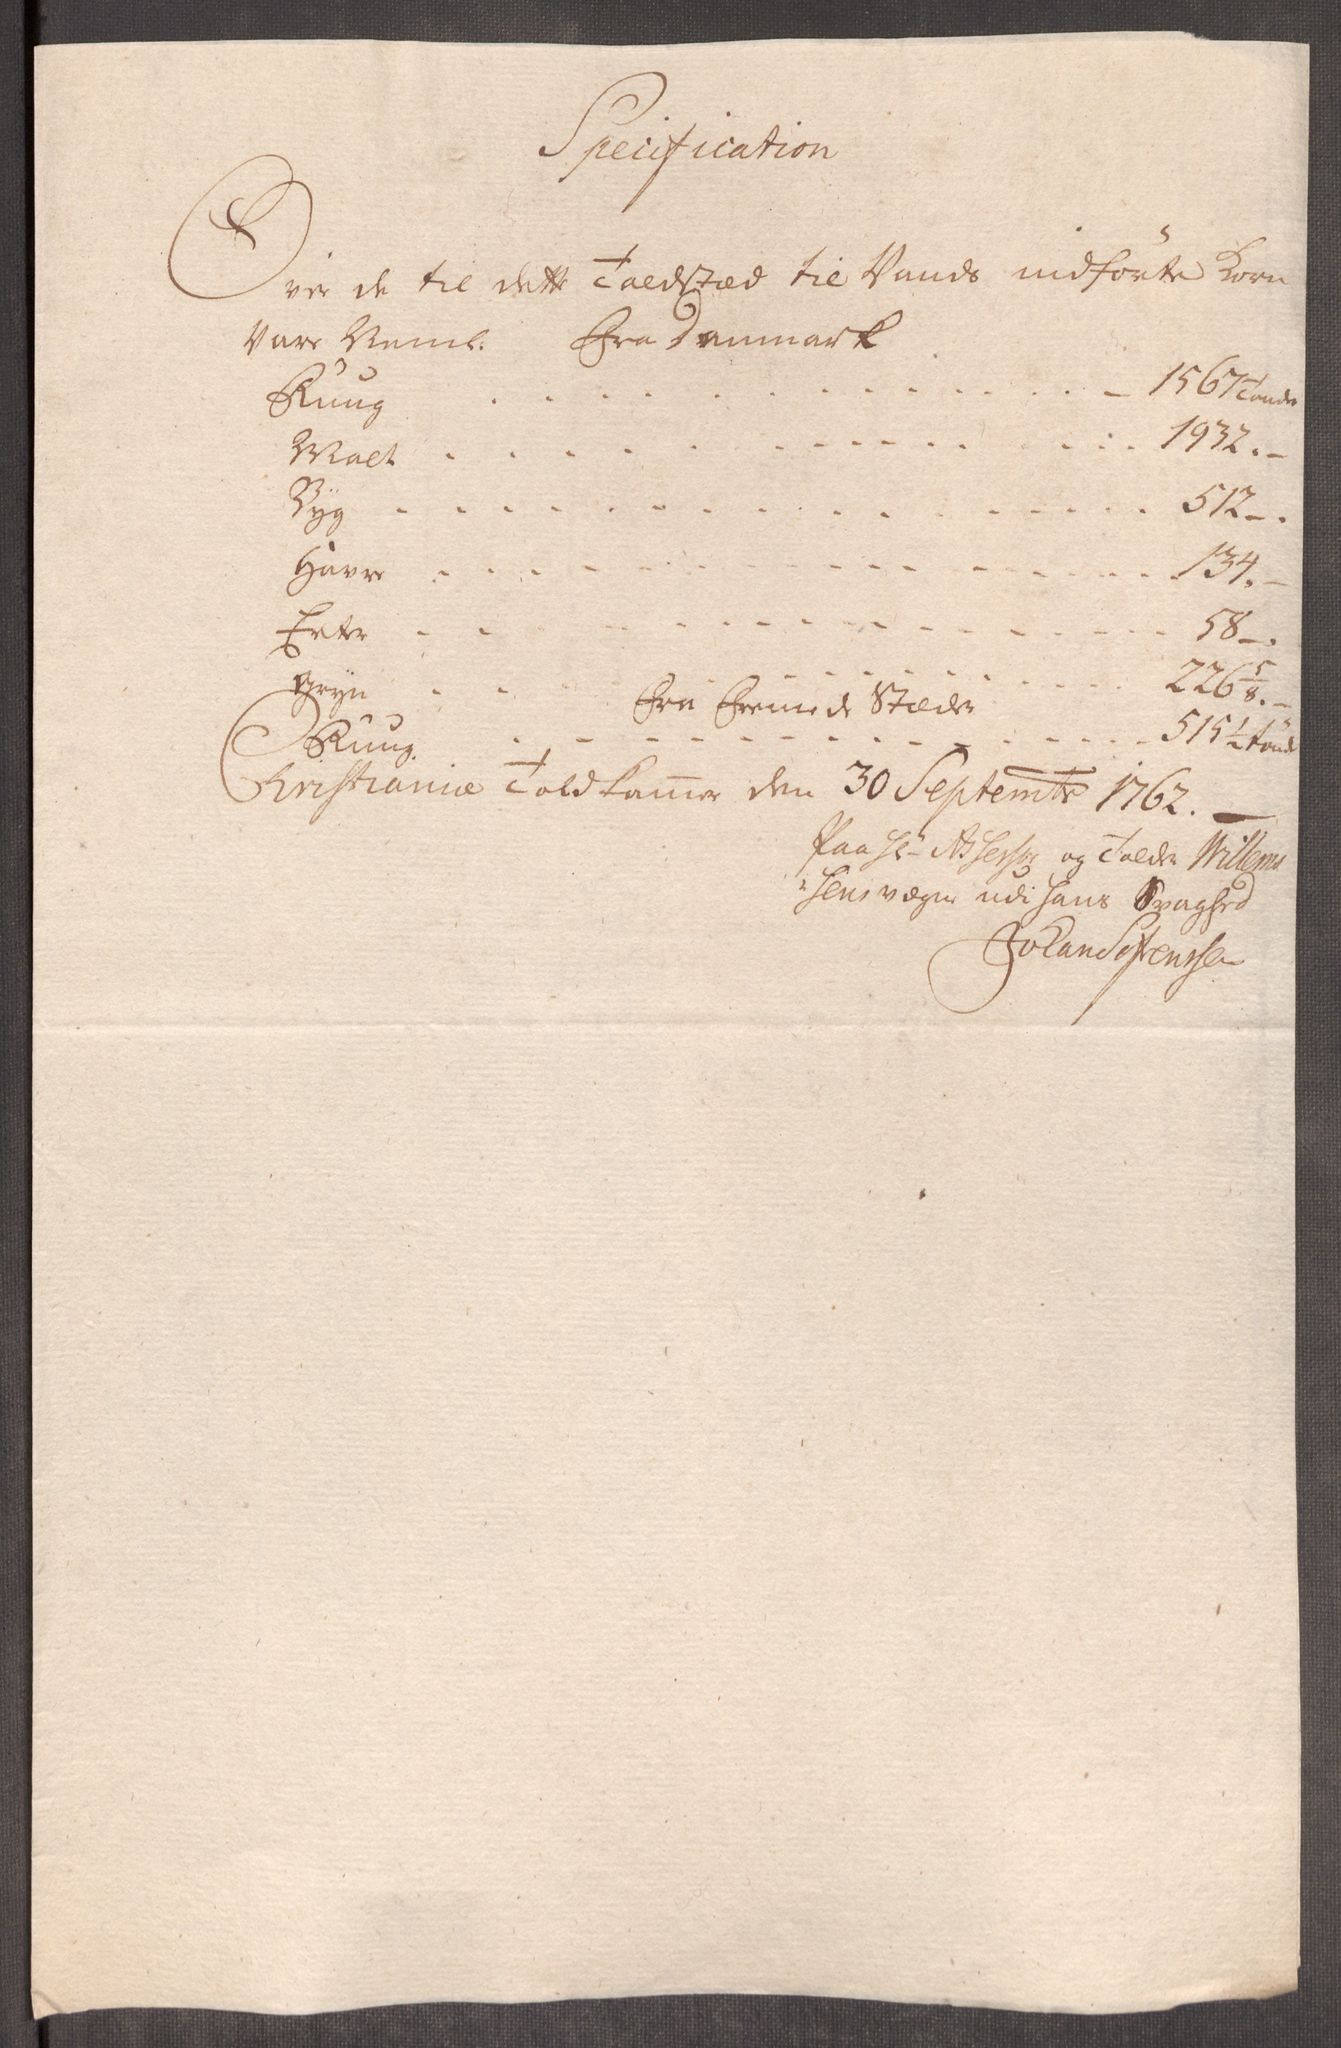 Specification
Over de til dette Toldsted til Vands indförte Korn
Vare Neml. Fra Danmark
Ruug 1567 Tönder
Malt 1932.-
Byg 512-.
Havre 134.-
Erter 58-.
Gryn 226 5/8.-
Fra Fremmede Stæder
Ruug 515 1/2 Tönd
Christianiæ Toldkamer den 30 Septembr 1762.
Paa Hr Assessor og Tolder Willems
sens vegne udi hans Svaghed
Sörenssen